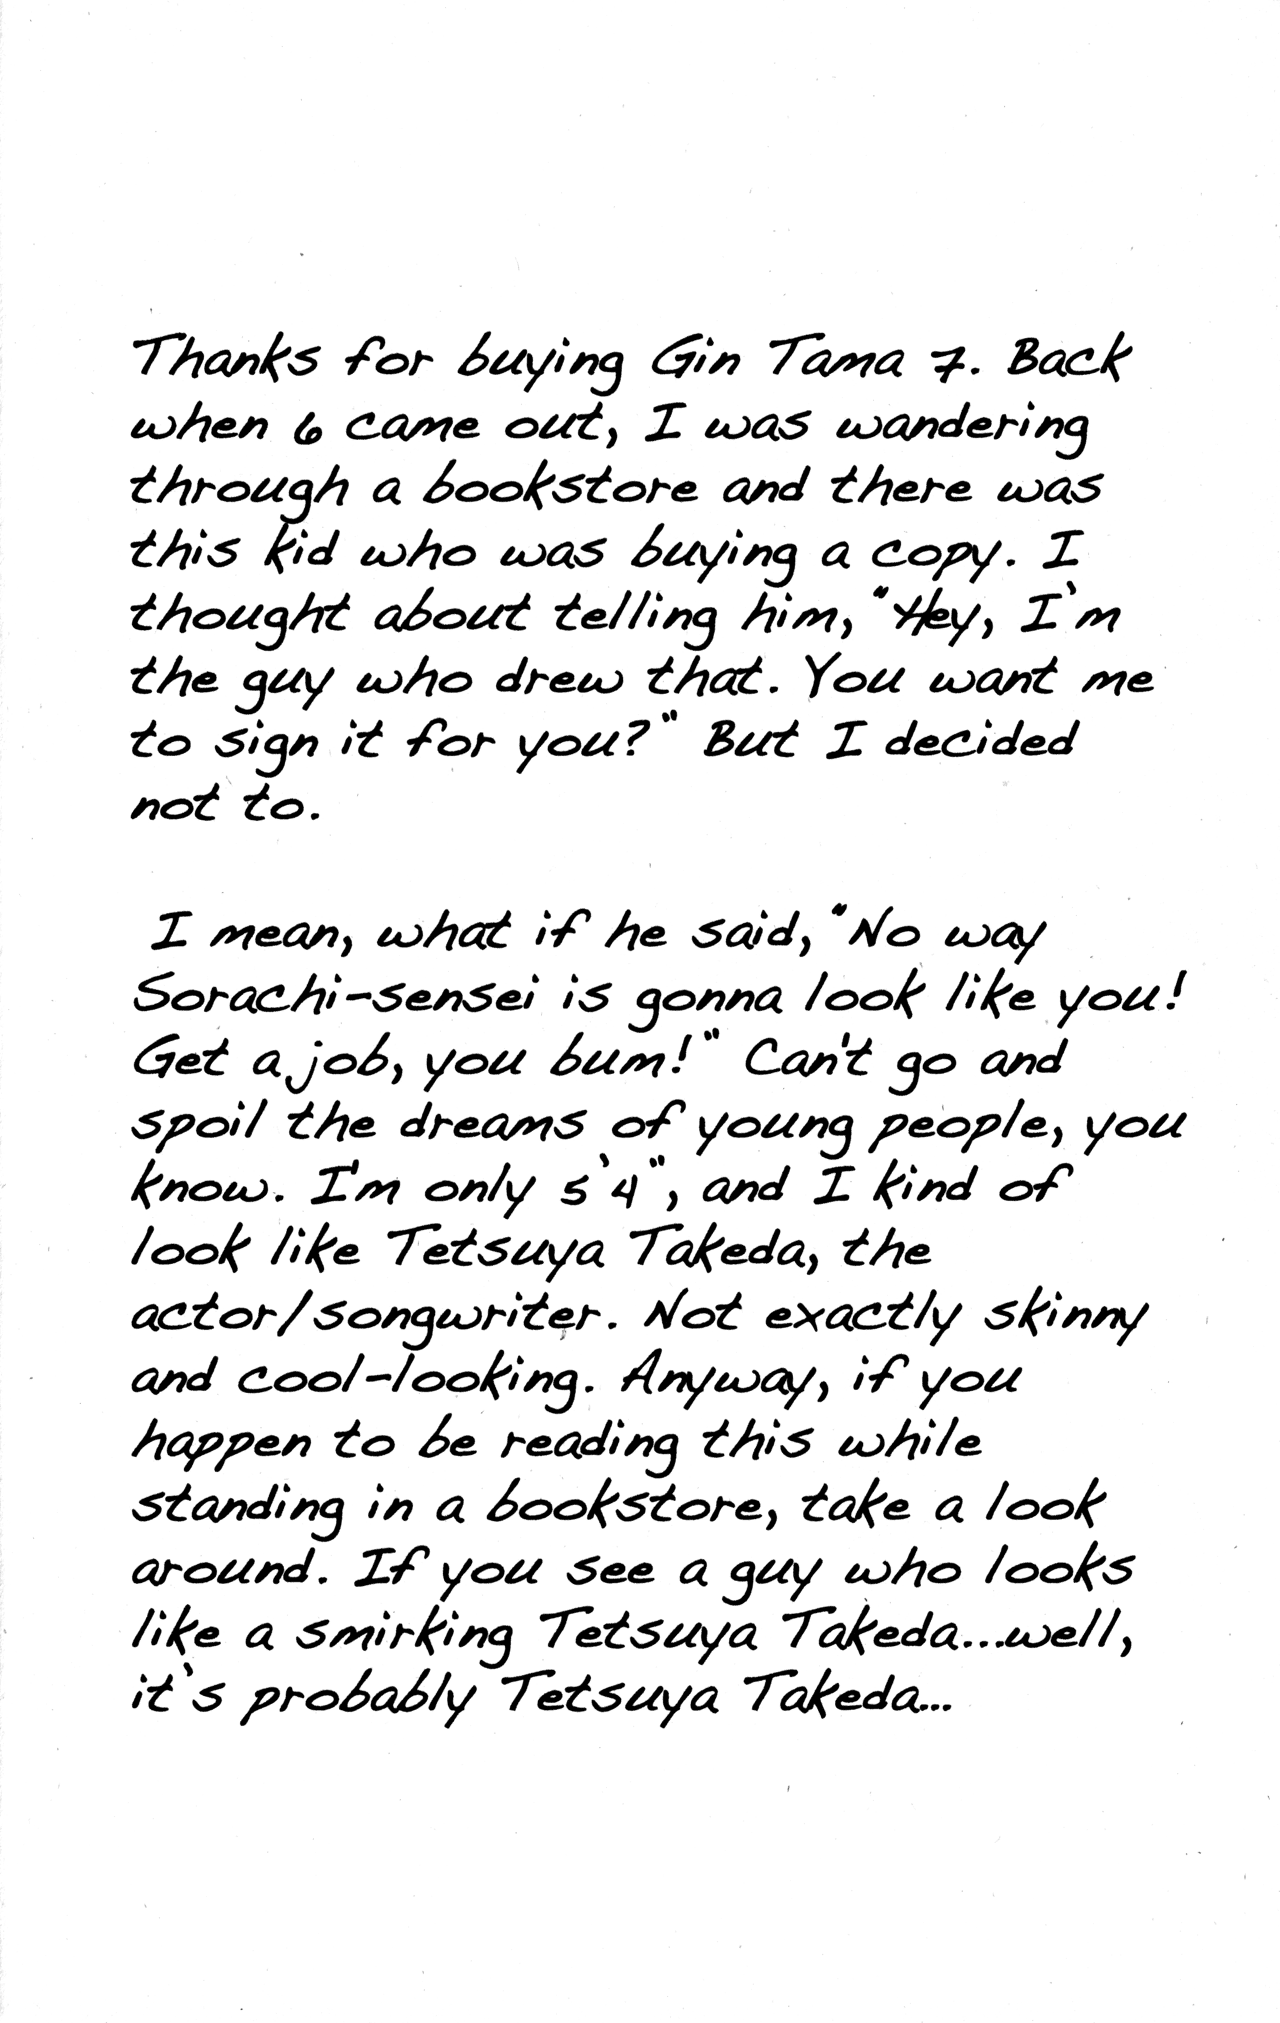 Thanks for buying Gin Tama 7. Back
when 6 came out, I was wandering
through a bookstore and there was
this kid who was buying a copy. I
thought about telling him, "Hey, I'm
the guy who drew that. You want me
to sign it for you?" But I decided
not to.
I mean, what if he said, "No way
Sorachi-sensei is gonna look like you!
Get a job, you bum!" Can't go and
spoil the dreams of young people, you
know. I'm only 5'4", and I kind of
look like Tetsuya Takeda, the
actor/songwriter. Not exactly skinny
and cool-looking. Anyway, if you
happen to be reading this while
standing in a bookstore, take a look
around. If you see a guy who looks
like a smirking Tetsuya Takeda...well,
it's probably Tetsuya Takeda...